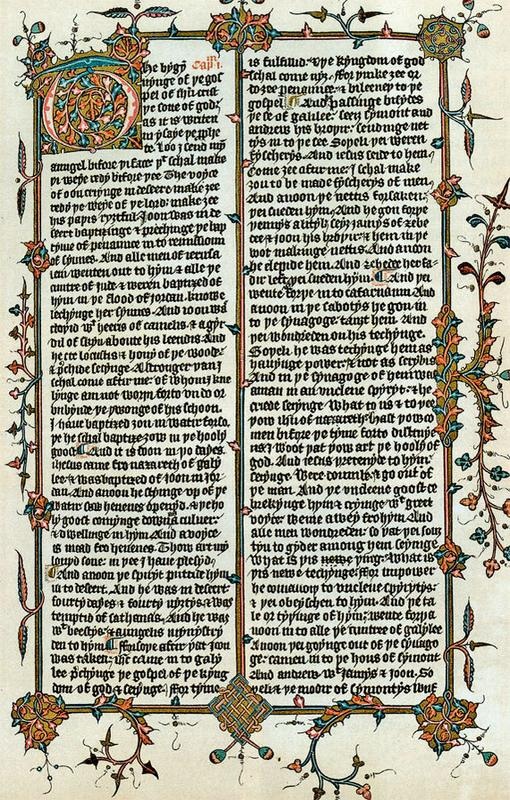 he bygȳ Capᵐ I.
nynge of ye gos
pel of ihū crist
ye sone of god;
as it is writen
in ysaye ye ꝓphe
te. Loo I send myn
aungel bifore yi face yt schal make
yi weye redy bifore yee. The voyce
of oon cryinge in desert: make zee
redy ye weye of ye lord: make zee
his paþis ryztful. Joon was in de
sert baptisinge & prechinge ye bap
tyme of penaunce in to remissioun
of synnes. And alle men of ierusa
lem wenten out to hym & alle ye
cuntre of jude & weren baptized of
hym in ye flood of jordan: know
lechynge her synnes. And ioon was
cloyid wt heeris of camelis & a gyr
dil of skyn aboute his leendis. And
he eet locustis & hony of ye wode:
& prchide seyinge. A stronger yan I
schal come aftir me: of whom I kne
lynge am not worþi forto vn do or
unbynde ye þwonge of his schoon.
I haue baptized zou in watir forso.
ye he schal baptize zow in ye hooly
goost. And it is doon in yo dayes:
ihesus came fro nazareth of galy
lee & was baptized of ioon in ior
dan. And anoon he stiynge up of ye
watir saw heuenes openyd. & ye ho
ly goost comynge doun as culuer:
& dwellinge in hym. And a voyce
is maad fro heuenes. Thow art my
louyd sone: in yee I haue plesyd.
And anoon ye spiryt puttide hym
in to desert. And he was in desert
fourty dayes & fourty nyztis. & was
temptid of sathanas. And he was
wt beestys. & aungelis mynystry
den to hym. Forsoþe aftir yat ioon
was taken: ihc came in to galy
lee prechynge ye gospel of ye kyng
dom of god & seyinge. For tyme
is fulfillid. & ye kyngdom of god
schal come nyz. For þinke zee or
do zee penaunce. & bileeuey to ye
gospel. And passinge bisydes
ye se of galilee: seez symont and
andrew his broþir: sendinge net
tys in to ye see. Soþeli yei weren
fyscherys. And ihesus seide to hem.
Come zee aftir me: I schal make
zou to be made fyscherys of men.
And anoon ye nettis forsaken:
yei sueden hym. And he gon forþe
yennys a lityl: seez jamys of zebe
dee & joon his broþir: & hem in ye
boot makinge nettis. And anoon
he clepide hem. And zebedee her fa
dir left: yei sueden hym. And yei
wente forþe in to cafarnaum. And
anoon in ye sabotys he gon in
to ye synagoge: tauzt hem. And
yei wondreden on his techynge.
Soþeli he was techynge hem as
hauynge power: & not as scrybis.
And in ye synagoge of hem was
a man in an unclene spyryt: & he
criede seyinge. What to us & to yee
yow ihū of nazareth: hast yow co
men bifore ye tyme forto distruye
us? I woot yat yow art ye hooly of
god. And iesus þretenyde to hym
seyinge. Were doumb: & go out of
ye man. And ye unclene goost de
brekynge hym & cryinge wt greet
voyce: wente awey fro hym. And
alle men wondreden: so yat yei sou
ztyn to gyder among hem seyinge.
What is yis þing: what is
yis newe techynge. For in power
he comaundiþ to unclene spyrytys:
& yei obeyschen to hym. And ye ta
le or tyþinge of hym: wente forþe
anoon in to alle ye cuntree of galylee.
And anoon yei goynge out of ye synago
ge: camen in to ye hous of symont
and andrew wt jamys & joon. So
þeli & ye modir of symontys wyif